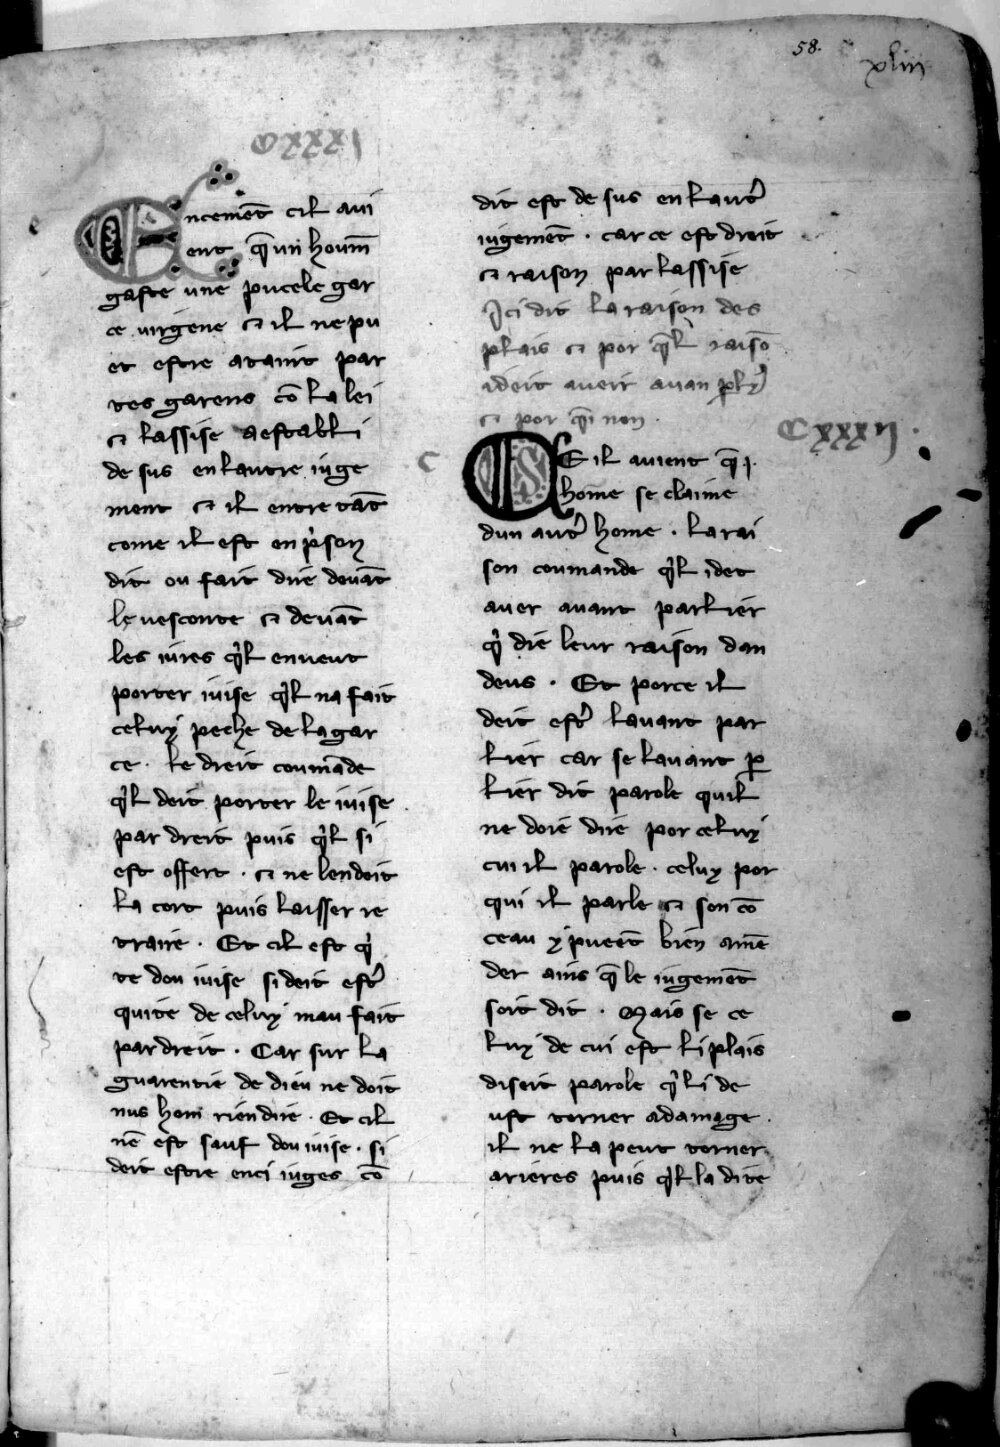 58.
xliii
CXXXI
Encemēt cil avi
ent q̄ un houm̄
gaste une pucele gar
ce virgene ⁊ il ne pu
et estre ataint par
tes garens cō la lei
⁊ lassise a establi
de sus en lautre iuge
ment ⁊ il entre tāt
come il est en p̉son
dit ou fait dire devāt
le vesconte ⁊ devāt
les iures q̉l en veut
porter iuise q̉l na fait
celuy peche de la gar
ce. le dreit coumāde
q̉l doit porter le iuise
par dreit puis q̉l si
est offert . ⁊ ne len doit
la cort puis laisser re
traire . Et cil est q̉
te dou iuise si deit est̉
quite de celuy mau fait
par dreit . Car sur la
guarentie de dieu ne doit
nus hom rien dire . Et cil
nē est sauf dou iuise . si
deit estre enci iuges cō
dit est de sus en laut̉
iugemēt . car ce est droit
⁊ raison par lassise
Ici dit la raison des
plais ⁊ por q̄l raisō
i deit aveir avan
⁊ por q̄i non .
CXXXII .
C
Ce il avient q̄ .j.
home se claime
dun aut̉ home . la rai
son coumande q̉l i det
aver avant parlier
q̉ die leur raison dan
deus . Et por ce il
deit est̉ lavant par
lier car se lavant ꝑ
lier dit parole quil
ne doie dire por celuy
cui il parole . celuy por
qui il parle ⁊ son cō
ceau y pueēt bien amē
der ains q̄ le iugemēt
soit dit . Mais se ce
luy de cui est li plais
diseit parole q̉ li de
ust torner a damage .
il ne la peut torner
arieres puis q̉l la dite